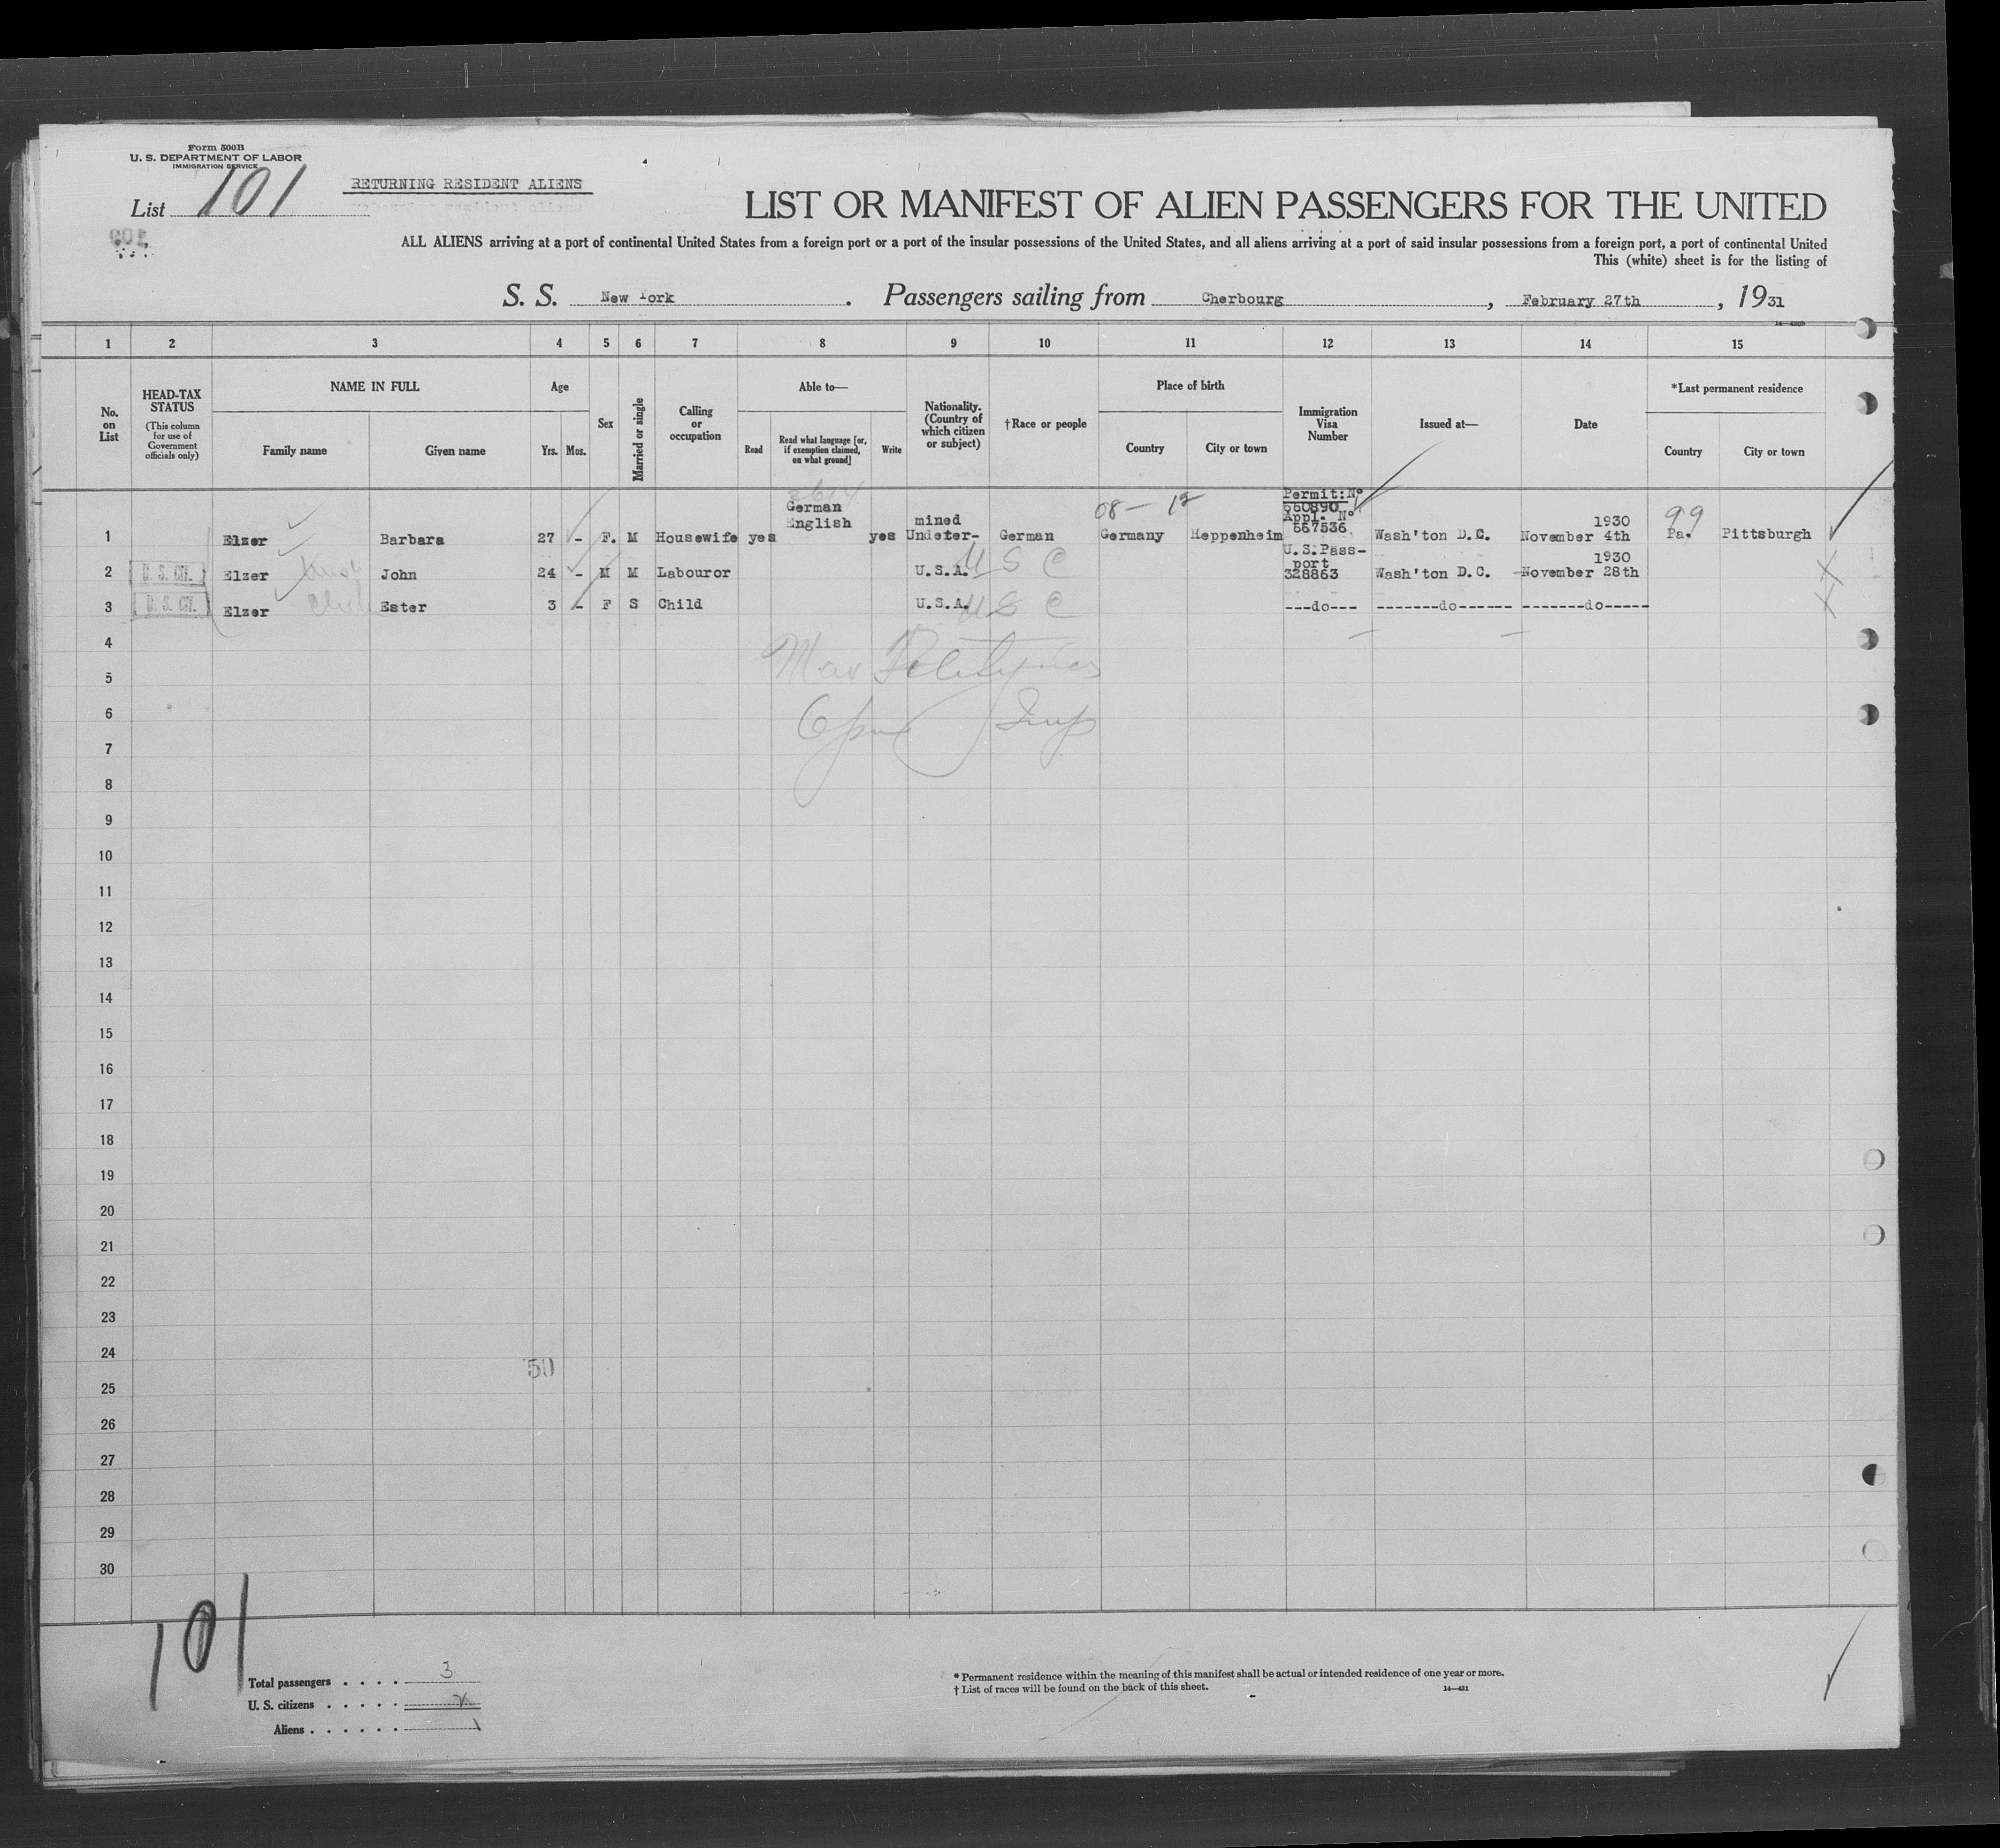 Form 500B
U. S. DEPARTMENT OF LABOR
IMMIGRATION SERVICE
List 101
RETURNING RESIDENT ALIENS
LIST OR MANIFEST OF ALIEN PASSENGERS FOR THE UNITED
ALL ALIENS arriving at a port of continental United States from a foreign port or a port of the insular possessions of the United States, and all aliens arriving at a port of said insular possessions from a foreign port, a port of continental United
This (white) sheet is for the listing of
S. S. New York. Passengers sailing from Cherbourg, February 27th, 1931
1 2 3 4 5 6 7 8 9 10 11 12 13 14 15
No. on List
HEAD-TAX STATUS
(This column for use of Government officials only)
NAME IN FULL
Family name Given name
Age
Yrs. Mos.
Sex
Married or single
Calling or occupation
Able to—
Read
Read what language [or, if exemption claimed, on what ground]
Write
Nationality. (Country of which citizen or subject)
†Race or people
Place of birth
Country City or town
Immigration Visa Number
Issued at—
Date
*Last permanent residence
Country City or town
08 – 12
99
1 Elzer Barbara 27 - F. M Housewife yes German English yes Undeter-mined German Germany Heppenheim Permit:No 660890 Appl. No 667536 Wash'ton D.C. November 4th 1930 Pa. Pittsburgh
2 U. S. CIT. Elzer John 24 - M M Labouror U.S.A. U S C U.S.Pass-port 328863 Wash'ton D.C. November 28th 1930
3 U. S. CIT. Elzer Ester 3 - F S Child U.S.A. U S C ---do--- -------do------ -------do-----
4
5
6
7
8
9
10
11
12
13
14
15
16
17
18
19
20
21
22
23
24
50
25
26
27
28
29
30
101
Total passengers . . . . 3
U. S. citizens . . . . . 2
Aliens . . . . . . 1
* Permanent residence within the meaning of this manifest shall be actual or intended residence of one year or more.
† List of races will be found on the back of this sheet.
14—421